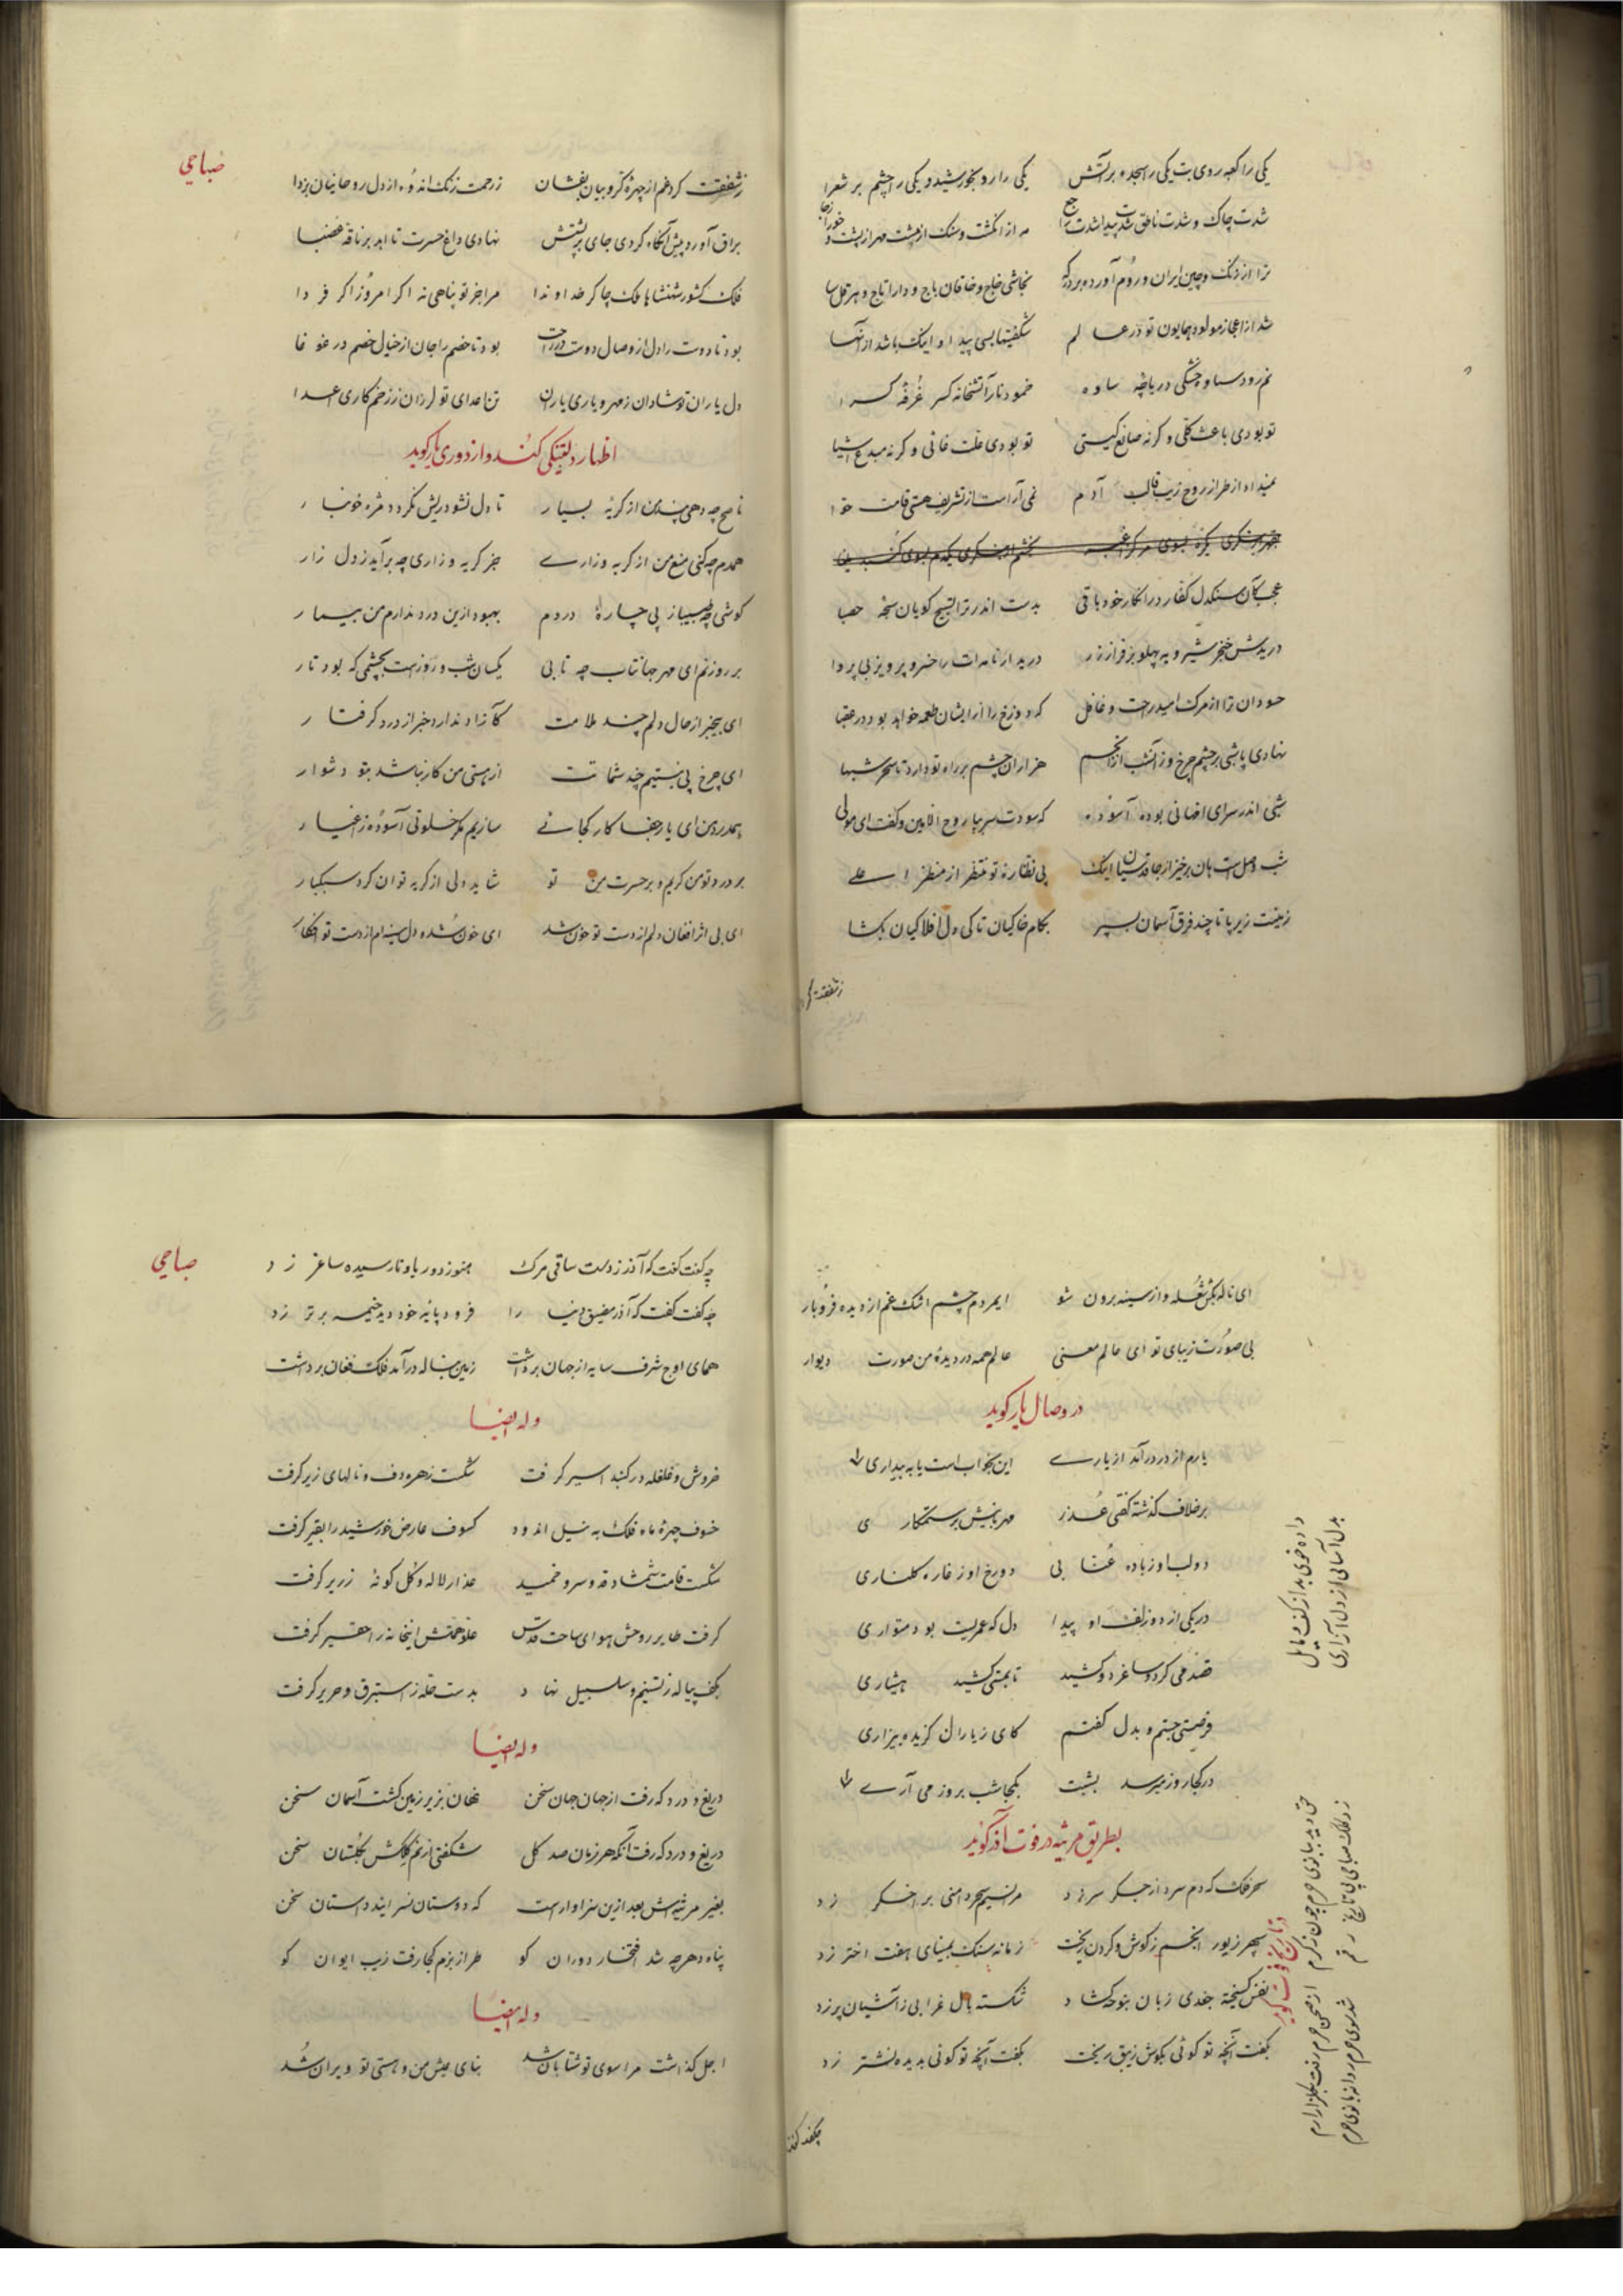 یکی را کعبه روی بت یکی را سجده بر آتش یکی را رو بخورشید و یکی را چشم بر شعرا
شدت چاک و شدت ناطق شدت پیدا شدت مه از انگشت و سنگ از مشت مهر از پشت و
ترا از زنگ و چین ایران و روم آورده بر درگه نجاشی خلج و خاقان باج و دارا تاج و هرقل سا
شد از اعجاز مولود همایون تو در عالم شگفتیها بسی پیدا و اینک باشد از آنها
نم رود سماوه خشکی دریاچه ساوه خمود نار آتشخانه کسر غرفه کسرا
تو بودی باعث کلی و گرنه صانع گیتی تو بودی علت غائی و گرنه مبدع اشیا
نمیداد از طراز روح زیب قالب آدم نمی آراست از تشریف هستی قامت حوا
عجب کآن سنگدل کفار در انکار خود باقی بدست اندر ترا تسبیح گویان سخه حصبا
دریدش خنجر شیرویه پهلو بر فراز زر درید ار نامه ات را خسرو پرویز بی پروا
حسودان ترا از مرگ امید راحت و غافل که دوزخ را از ایشان طعمه خواهد بود در عقبا
نهادی پا شبی بر چشم چرخ و ز آنشب از انجم هزاران چشم بر راه تو دارد تا سحر شبها
شبی اندر سرای امهانی بوده آسوده که سودت سر بپا روح الامین و گفت ای مولی
شب وصل است هان برخیز از جا قدسیان اینک پی نظاره تو منتظر از منظر اعلے
زمینت زیر پا تا چند فرق آسمان بسپر بکام خاکیان تا کی دل افلاکیان بگشا
ز شفقت کر
صباحی
ز شفقت گرد غم از چهره کروبیان بفشان ز رحمت زنگ اندوه از دل روحانیان بزدا
براق آورد پیش آنگاه کردی جای بر پشتش نهادی داغ حسرت تا ابد بر ناقه غضبا
فلک کشور شهنشاها ملک چاکر خداوندا مرا جز تو پناهی نه اگر امروز اگر فردا
بود تا دوست را دل از وصال دوست در راحت بود تا خصم را جان از خیال خصم در غوغا
دل یاران تو شادان ز مهر و یاری یاران تن اعدای تو لرزان ز زخم کاری اعدا
اظهار دلتنگی کند و از دوری یار گوید
ناصح چه دهی پند من از گریه بسیار تا دل نشود ریش نگردد مژه خونبار
همدم چه کنی منع من از گریه و زارے جز گریه و زاری چه برآید ز دل زار
کوشی چه طبیبا ز پی چاره دردم بهبود ازین درد ندارم من بیمار
بر روزنم ای مهر جهانتاب چه تابی یکسان شب و روزست بچشمی که بود تار
ای بیخبر از حال دلم چند ملامت کآزاد ندارد خبر از درد گرفتار
ای چرخ پی نیستیم چند شماتت از هستی من کار نباشد بتو دشوار
همدرد من ای یار جفا کار کجائے سازیم مگر خلوتی آسوده ز اغیار
بر درد تو من گریم و بر حسرت من تو شاید دلی از گریه توان کرد سبکبار
ای بی اثر افغان دلم از دست تو خون شد ای خون شده دل سینه ام از دست تو افکار
ای ناله بکش شعله و از سینه برون شو ایمردم چشم اشک غم از دیده فروبار
بی صورت زیبای تو ای عالم معنی عالم همه در دیده من صورت دیوار
در وصال یار گوید
یارم از در درآمد از یارے این بخواب است یا به بیداری
بر خلاف گذشته گفتی عذر مهربانیش بر ستمکاری
دو لب او ز باده عنابی دو رخ او ز غازه گلناری
در یکی از دو زلف او پیدا دل که عمریست بود متواری
قصد می کرد و ساغر دو کشید تا بمستی کشید هشیاری
فرصتی جستم و بدل گفتم کای ز یاران گزیده بیزاری
در کجا روز میرسد بشبت بکجا شب بروز می آرے
داده خوی بد از کف و مایل
بدل آسائی از دل آزاری
بطریق مرثیه در فوت آذر گوید
سحر فلک که دم سرد از جگر سر زد مر نسیم سحر دامنی بر اخگر زد
سپهر زیور انجم ز گوش و گردن ریخت زمانه سنگ بمینای هفت اختر زد
نفس گسیخته جغدی زبان بنوحه گشاد شکسته بال غرابی ز آشیان پر زد
بگفت آنچه تو گوئی بگوش زیبق ریخت بگفت آنچه تو گوئی بدیده نشتر زد
حق دید به بانوی حرم چون ز کرم از صحن حرم رفت بگلزار ارم
زد کلک صباحی پی تاریخ رقم شد سوی حرم روانه بانوی حرم
چه گفت گفت
صباحی
چه گفت گفت که آذر ز دست ساقی مرگ هنوز دور باو نارسیده ساغر زد
چه گفت گفت که آذر مضیق دنیا را فرود پایه خود دید خیمه برتر زد
همای اوج شرف سایه از جهان برداشت زمین بناله درآمد فلک فغان برداشت
وله ایضاً
خروش و غلغله در گنبد اسیر گرفت شکست زهره دف و نالهای زیر گرفت
خسوف چهره ماه فلک به نیل اندود کسوف عارض خورشید را بقیر گرفت
شکست قامت شمشاد و قد سرو خمید عذار لاله و گل گونه زریر گرفت
گرفت طایر روحش هوای ساحت قدس علو همتش اینخانه را حقیر گرفت
بکف پیاله ز تسنیم و سلسبیل نهاد بدست حله ز استبرق و حریر گرفت
وله ایضاً
دریغ و درد که رفت از جهان جهان سخن نهان بزیر زمین گشت آسمان سخن
دریغ و درد که رفت آنکه هر زمان صد گل شکفتی از نم کلکش بگلستان سخن
بغیر مرثیه اش بعد ازین سزاوار است که دوستان نسرایند داستان سخن
پناه دهر چه شد افتخار دوران کو طراز بزم کجا رفت زیب ایوان کو
وله ایضاً
اجل گذاشت مرا سوی تو شتابان شد بنای عیش من و هستی تو ویران شد